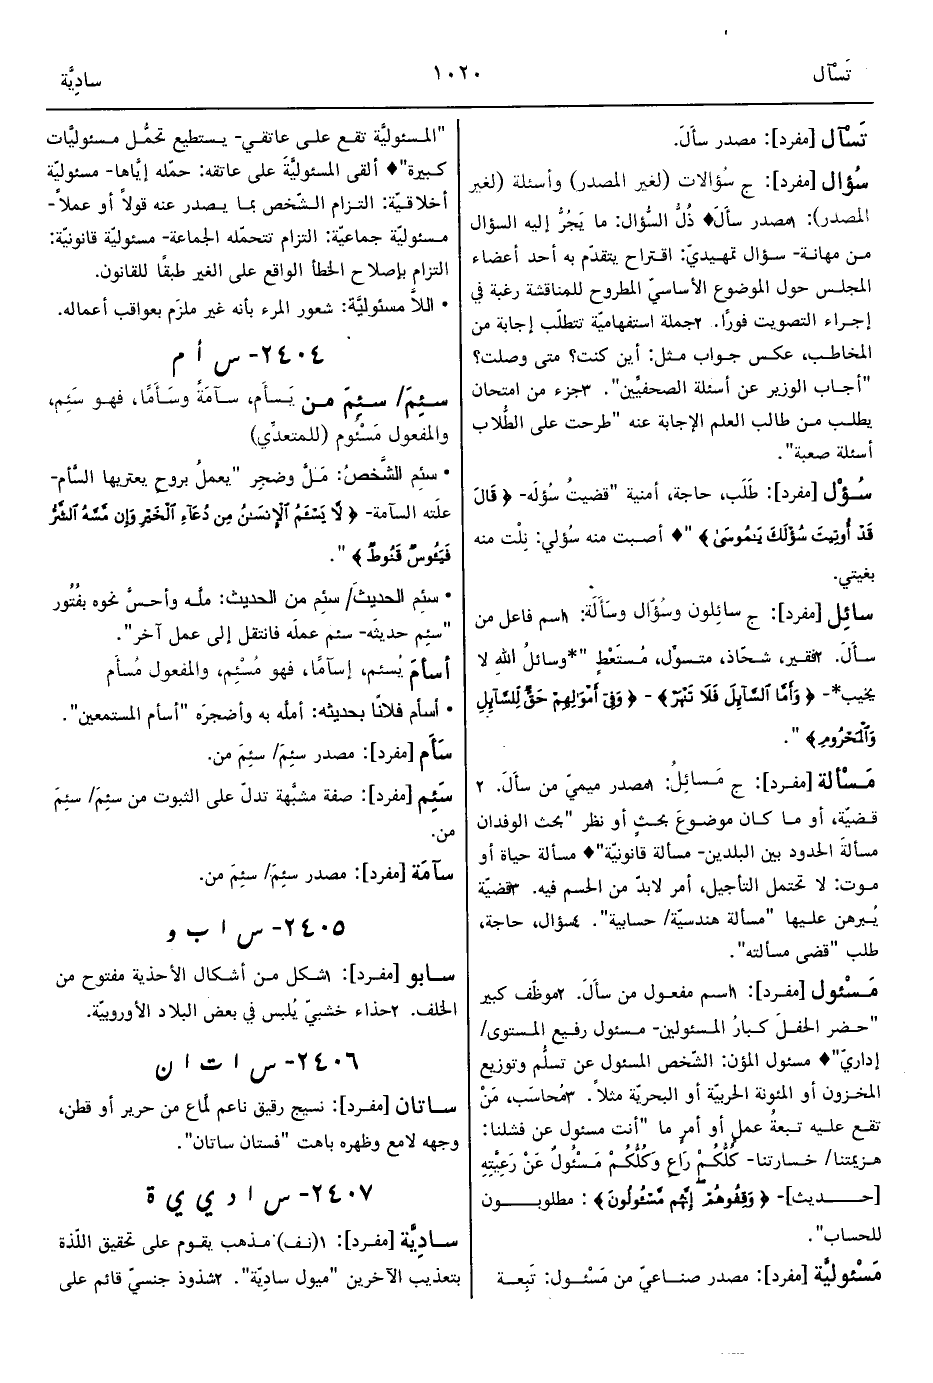 تَسْآل
١٠٢٠
ساديَّة
تَسْآل [مفرد]: مصدر سألَ.
سُؤال [مفرد]: ج سُؤالات (لغير المصدر) وأسئلة (لغير
المصدر): ١مصدر سألَ♦ ذُلُّ السُّؤال: ما يَجُرُّ إليه السؤال
من مهانة- سؤال تمهيديّ: اقتراح يتقدّم به أحد أعضاء
المجلس حول الموضوع الأساسيّ المطروح للمناقشة رغبة في
إجراء التصويت فورًا. ٢جملة استفهاميّة تتطلّب إجابة من
المخاطب، عكس جواب مثل: أين كنت؟ متى وصلت؟
"أجاب الوزير عن أسئلة الصحفيِّين". ٣جزء من امتحان
يطلب من طالب العلم الإجابة عنه "طرحت على الطُّلاب
أسئلة صعبة".
سُؤْل [مفرد]: طَلَب، حاجة، أمنية "قضيتُ سُؤلَه- ﴿ قَالَ
قَدْ أُوتِيتَ سُؤْلَكَ يَـٰمُوسَىٰ ﴾ "♦ أصبت منه سُؤلي: نِلْت منه
بغيتي.
سائِل [مفرد]: ج سائلون وسُؤّال وسأَلَة: ١اسم فاعل من
سألَ. ٢فقير، شحّاذ، متسوّل، مُستَعْطٍ "*وسائلُ اللهِ لا
يخيب*- ﴿ وَأَمَّا ٱلسَّآئِلَ فَلَا تَنْهَرْ ﴾- ﴿ وَفِىٓ أَمْوَٰلِهِمْ حَقٌّ لِّلسَّآئِلِ
وَٱلْمَحْرُومِ ﴾ ".
مَسْألة [مفرد]: ج مَسائلُ: ١مصدر ميميّ من سألَ. ٢
قضيّة، أو ما كان موضوعَ بحثٍ أو نظر "بحث الوفدان
مسألةَ الحدود بين البلدين- مسألة قانونيّة"♦ مسألة حياة أو
موت: لا تحتمل التأجيل، أمر لابدّ من الحسم فيه. ٣قضيّة
يُبرهن عليها "مسألة هندسيّة/ حسابية". ٤سؤال، حاجة،
طلب "قضى مسألته".
مَسْئول [مفرد]: ١اسم مفعول من سألَ. ٢موظّف كبير
"حضر الحفلَ كبارُ المسئولين- مسئول رفيع المستوى/
إداريّ"♦ مسئول المؤن: الشّخص المسئول عن تسلُّم وتوزيع
المخزون أو المئونة الحربيّة أو البحريّة مثلاً. ٣مُحاسَب، مَنْ
تقع عليه تبعةُ عملٍ أو أمرٍ ما "أنت مسئول عن فشلنا:
هزيمتنا/ خسارتنا- كُلُّكُمْ رَاعٍ وَكُلُّكُمْ مَسْئُولٌ عَنْ رَعِيَّتِهِ
[حـديث]- ﴿ وَقِفُوهُمْ إِنَّهُم مَّسْئُولُونَ ﴾ : مطلوبـون
للحساب".
مَسْئوليَّة [مفرد]: مصدر صناعيّ من مَسْئول: تَبِعـة
"المسئوليَّة تقع على عاتقي- يستطيع تحمُّل مسئوليَّات
كبيرة"♦ ألقى المسئوليَّةَ على عاتقه: حمّله إيَّاها- مسئوليّة
أخلاقيّة: التزام الشّخص بما يصدر عنه قولاً أو عملاً-
مسئوليّة جماعيّة: التزام تتحمّله الجماعة- مسئوليّة قانونيّة:
التزام بإصلاح الخطأ الواقع على الغير طبقًا للقانون.
• اللاَّ مسئوليَّة: شعور المرء بأنه غير ملزَم بعواقب أعماله.
٢٤٠٤- س أ م
سئِمَ/ سئِمَ من يَسأم، سآمَةً وسَأَمًا، فهو سَئِم،
والمفعول مَسْئوم (للمتعدِّي)
• سئم الشَّخصُ: مَلَّ وضجِر "يعملُ بروح يعتريها السَّأم-
علَته السآمة- ﴿ لَّا يَسْـَٔمُ ٱلْإِنسَـٰنُ مِن دُعَآءِ ٱلْخَيْرِ وَإِن مَّسَّهُ ٱلشَّرُّ
فَيَـُٔوسٌ قَنُوطٌ ﴾ ".
• سئِم الحديثَ/ سئِم من الحديث: ملّه وأحسَّ نحوه بفُتُور
"سئِم حديثَه- سئم عملَه فانتقل إلى عمل آخر".
أسأمَ يُسئم، إسآمًا، فهو مُسْئِم، والمفعول مُسأم
• أسأم فلانًا بحديثه: أملّه به وأضجرَه "أسأم المستمعين".
سَأَم [مفرد]: مصدر سئِمَ/ سئِمَ من.
سَئِم [مفرد]: صفة مشبَّهة تدلّ على الثبوت من سئِمَ/ سئِمَ
من.
سآمَة [مفرد]: مصدر سئِمَ/ سئِمَ من.
٢٤٠٥- س ا ب و
سابو [مفرد]: ١شكل من أشكال الأحذية مفتوح من
الخلف. ٢حذاء خشبيّ يُلبس في بعض البلاد الأوروبيّة.
٢٤٠٦- س ا ت ا ن
ساتان [مفرد]: نسيج رقيق ناعم لمّاع من حرير أو قطن،
وجهه لامع وظهره باهت "فستان ساتان".
٢٤٠٧- س ا د ي ي ة
ساديَّة [مفرد]: ١(نف) مذهب يقوم على تحقيق اللّذة
بتعذيب الآخرين "ميول ساديّة". ٢شذوذ جنسيّ قائم على